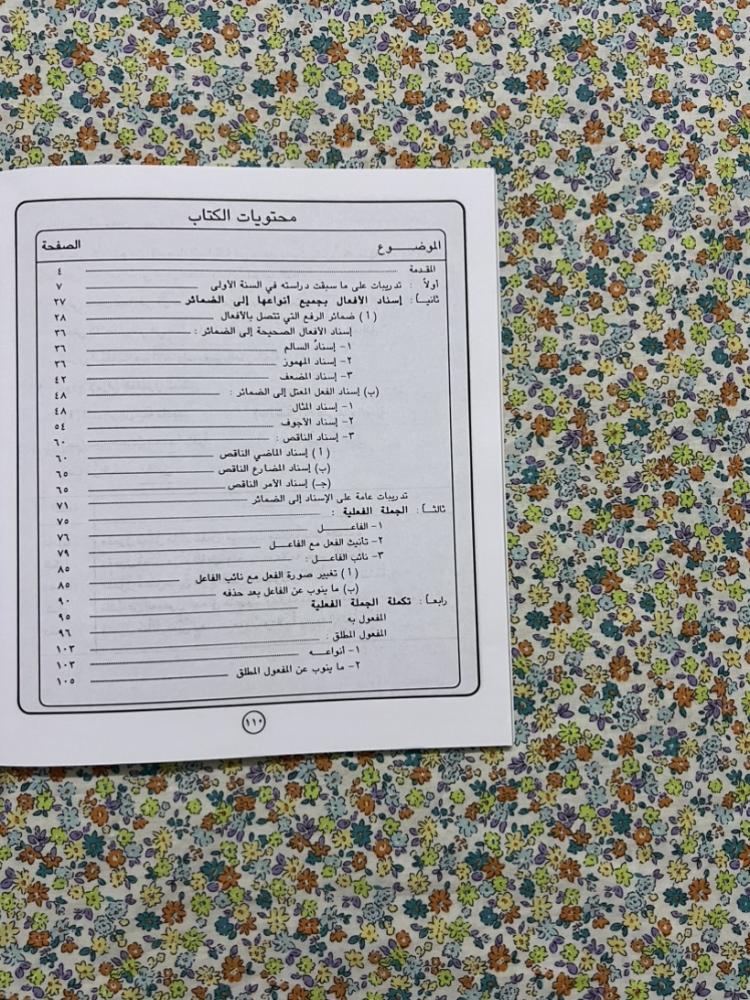 محتويات الكتاب
الموضـــــوع الصفحة
المقدمة ٤
أولاً : تدريبات على ما سبقت دراسته في السنة الأولى ٧
ثانيـاً : إسناد الأفعال بجميع أنواعها إلى الضمائر ٢٧
( أ ) ضمائر الرفع التي تتصل بالأفعال ٢٨
إسناد الأفعال الصحيحة إلى الضمائر : ٣٦
١- إسنادُ السالم ٣٦
٢- إسناد المهموز ٣٦
٣- إسناد المضعف ٤٢
(ب) إسناد الفعل المعتل إلى الضمائر : ٤٨
١- إسناد المثال ٤٨
٢- إسناد الأجوف ٥٤
٣- إسناد الناقص : ٦٠
( أ ) إسناد الماضي الناقص ٦٠
(ب) إسناد المضارع الناقص ٦٥
(جـ) إسناد الأمر الناقص ٦٥
تدريبات عامة على الإسناد إلى الضمائر ٧١
ثالثـاً : الجملة الفعلية : ٧٥
١- الفاعـــــل ٧٦
٢- تأنيث الفعل مع الفاعـــل ٧٩
٣- نائب الفاعـــل : ٨٥
( أ ) تغيير صورة الفعل مع نائب الفاعل ٨٥
(ب) ما ينوب عن الفاعل بعد حذفه ٩٠
رابعـاً : تكملة الجملة الفعلية ٩٥
المفعول به ٩٦
المفعول المطلق : ١٠٣
١- أنواعــــه ١٠٣
٢- ما ينوب عن المفعول المطلق ١٠٥
١١٠